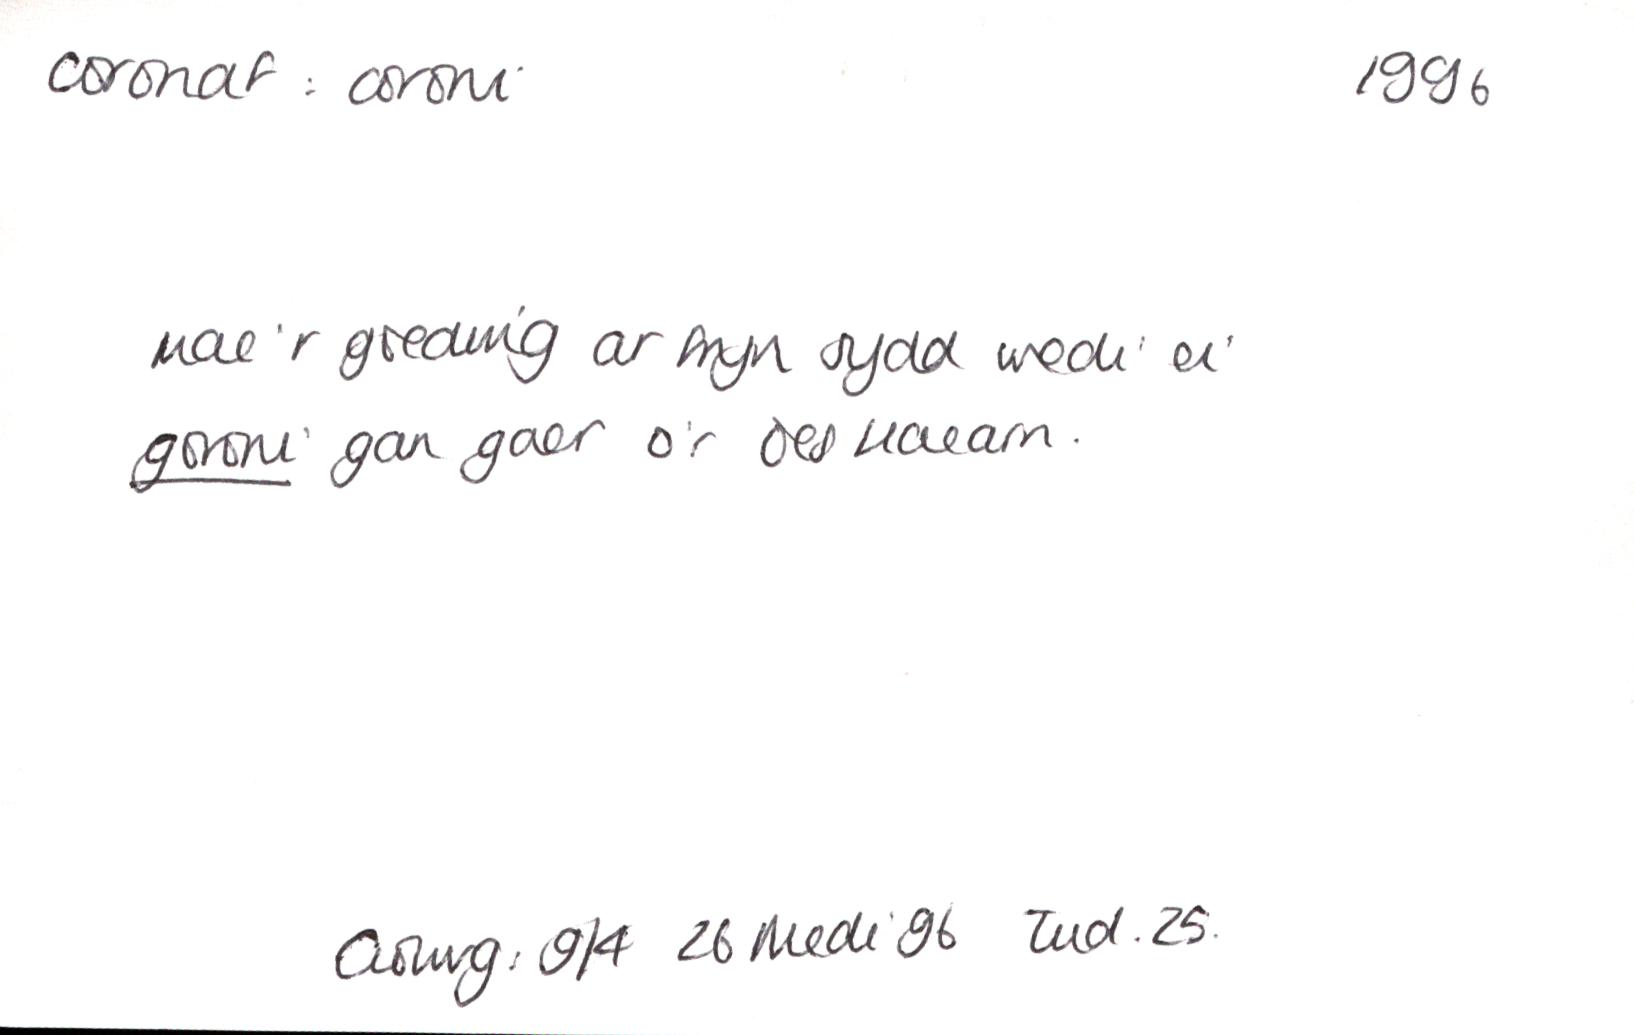 coronaf : coroni 1996
Mae'r greduig ar fryn sydd wedi ei
goroni gan gaer o'r oes haearn.
Golwg: 9/4 26 Medi 96 Tud. 25.